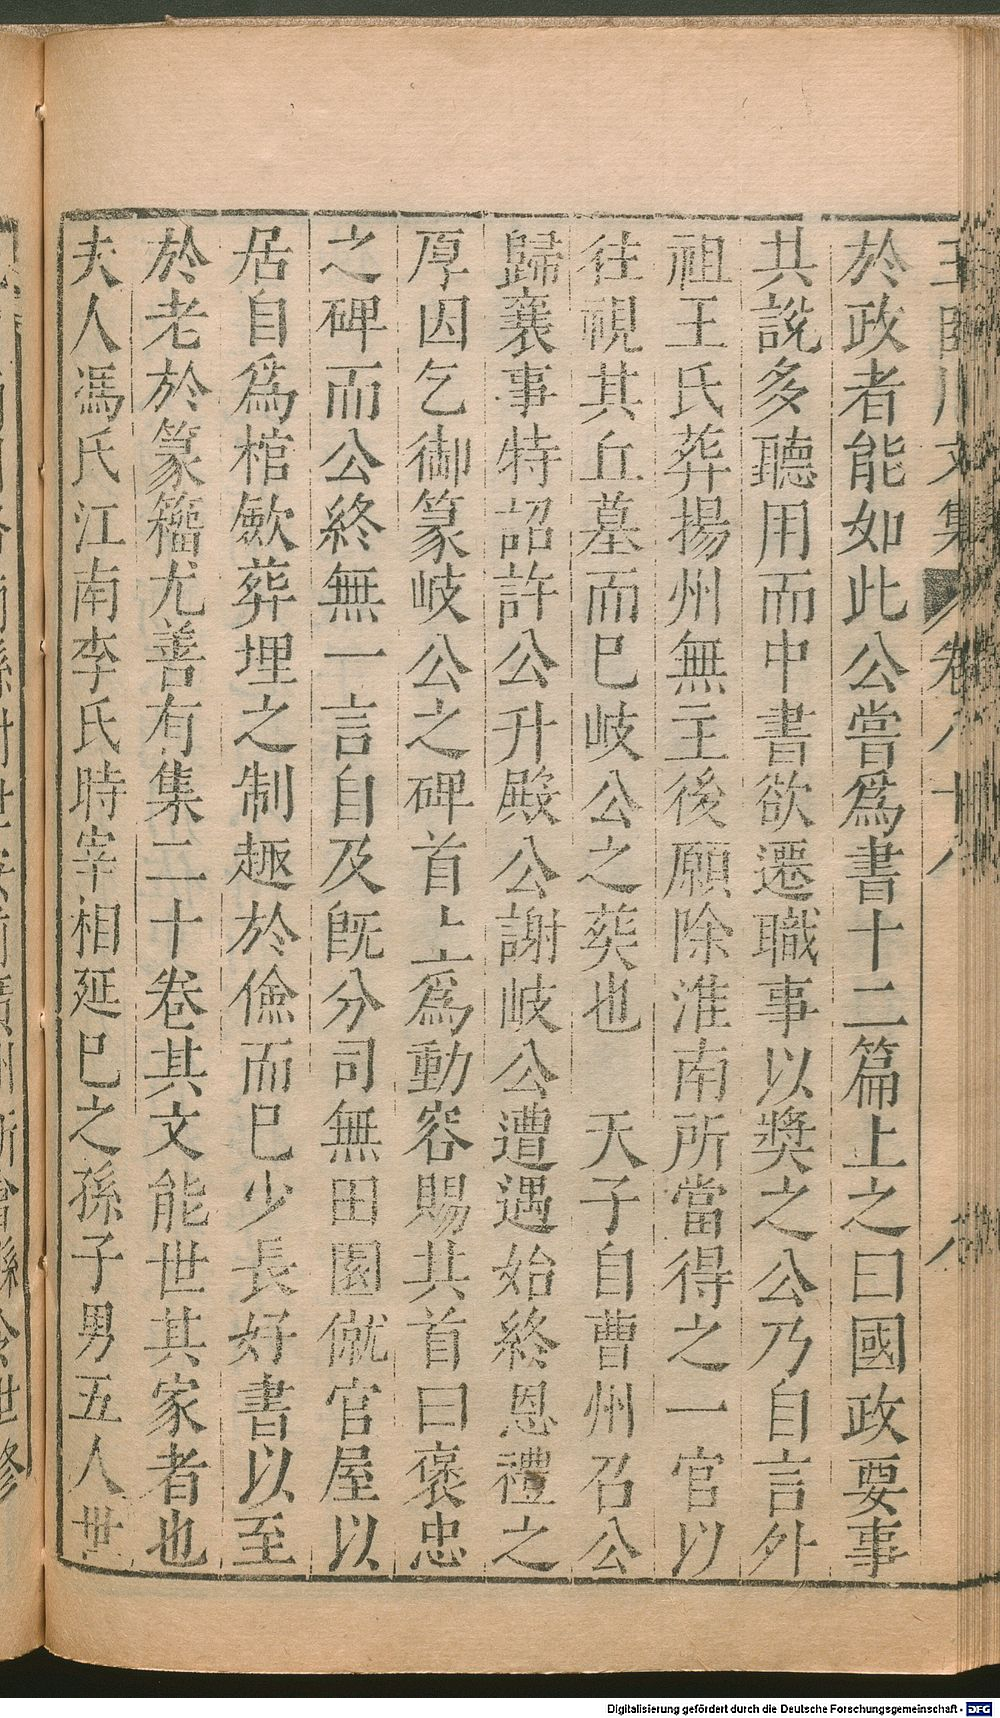 於政者能如此公嘗爲書十二篇上之曰國政要事
共說多聽用而中書欲遷職事以奬之公乃自言外
祖王氏葬揚州無主後願除淮南所當得之一官以
往視其丘墓而巳岐公之葬也 天子自曹州召公
歸襄事特詔許公升殿公謝岐公遭遇始終恩禮之
厚因乞御篆岐公之碑首上爲動容賜其首曰褒忠
之碑而公終無一言自及旣分司無田園僦官屋以
居自爲棺斂葬埋之制趣於儉而巳少長好書以至
於老於篆籀尤善有集二十卷其文能世其家者也
夫人馮氏江南李氏時宰相延巳之孫子男五人世
Digitalisierung gefördert durch die Deutsche Forschungsgemeinschaft - DFG